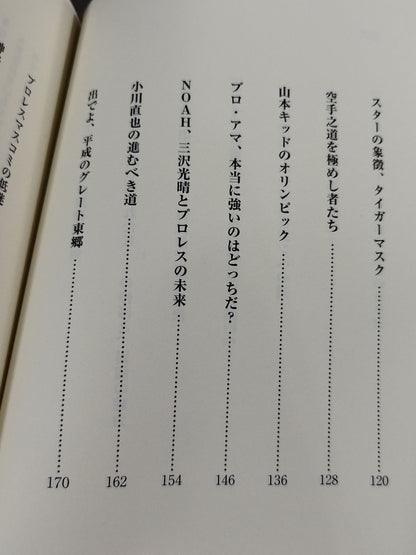 スターの象徴、タイガーマスク……………120
空手之道を極めし者たち……………128
山本キッドのオリンピック……………136
プロ・アマ、本当に強いのはどっちだ？……………146
NOAH、三沢光晴とプロレスの未来……………154
小川直也の進むべき道……………162
出でよ、平成のグレート東郷……………170
プロレスマスコミの